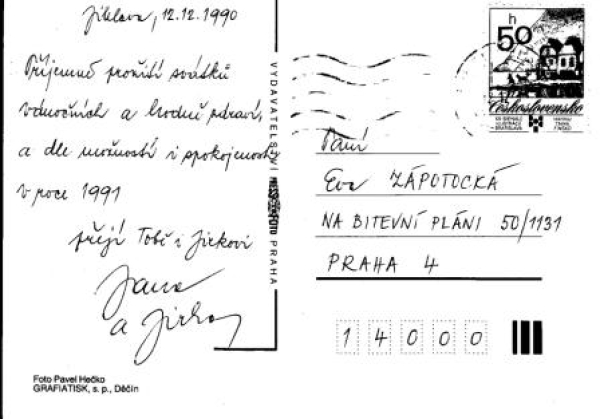 Jihlava, 12.12.1990
Příjemné prožití svátků
vánočních a hodně zdraví,
a dle možností i spokojenosti
v roce 1991
přejí Tobě i Jirkovi
Jana
a Jirka
Foto Pavel Hečko
GRAFIATISK, s. p., Děčín
VYDAVATELSTVÍ PRESSFOTO PRAHA
50 h
Československo
Paní
Eva ZÁPOTOCKÁ
NA BITEVNÍ PLÁNI 50/1131
PRAHA 4
14000